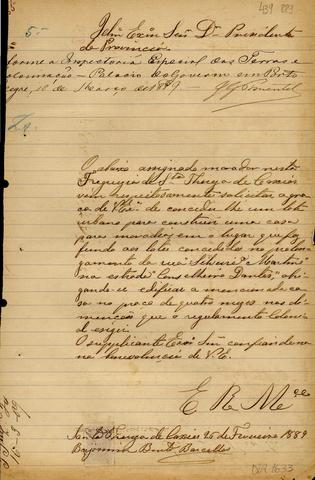 439 883
5-
Illmo Exmo Snr Dr Presidente
da Provincia
Informe a Inspectoria Especial das Terras e
Colonisação - Palacio do Governo em Porto
Alegre, de Março de 1889
O abaixo assignado morador nesta
Freguezia de Sta Thereza de Caxias
vem respeitosamente solicitar a gra-
ça de V Exa de conceder-lhe um lote
urbano para construir uma casa
para morada em o lugar que faz
fundo aos lotes concedidos no prolon-
gamento da rua Silveira Martins
na estrada "Conselheiro Dantas" obri-
gando-se edificar a mencionada ca-
sa no praso de quatro mezes nas di-
menções que o regulamento Colonial
exige.
O supplicante Exmo Snr confiando
na benevolencia de V. E.
E R Mce
Sta Thereza de Caxias 25 de Fevereiro 1889
Barcellos
16-3-89
1633